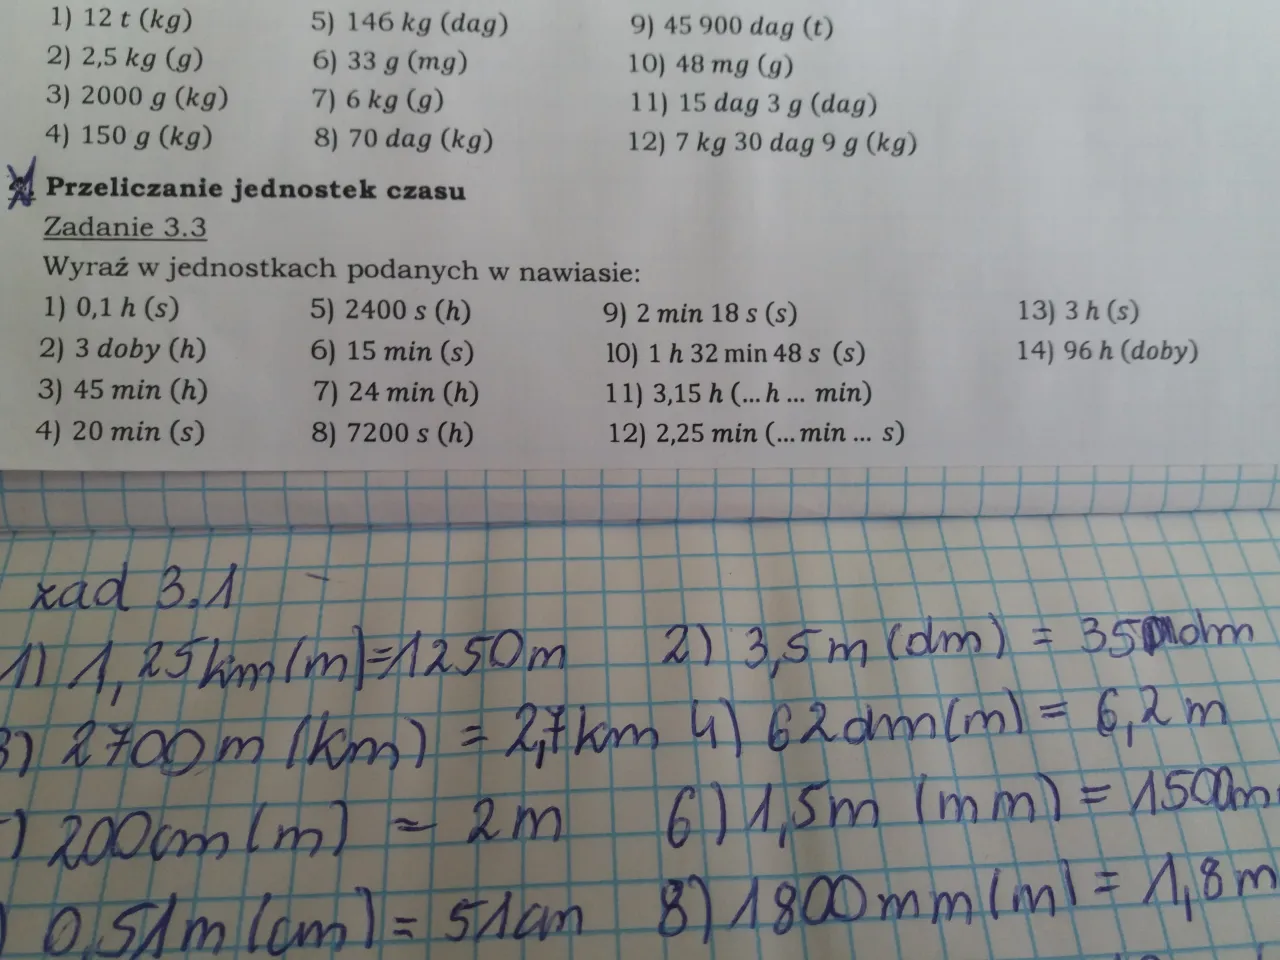 1) 12 t (kg) 5) 146 kg (dag) 9) 45 900 dag (t)
2) 2,5 kg (g) 6) 33 g (mg) 10) 48 mg (g)
3) 2000 g (kg) 7) 6 kg (g) 11) 15 dag 3 g (dag)
4) 150 g (kg) 8) 70 dag (kg) 12) 7 kg 30 dag 9 g (kg)
Przeliczanie jednostek czasu
Zadanie 3.3
Wyraź w jednostkach podanych w nawiasie:
1) 0,1 h (s) 5) 2400 s (h) 9) 2 min 18 s (s) 13) 3 h (s)
2) 3 doby (h) 6) 15 min (s) 10) 1 h 32 min 48 s (s) 14) 96 h (doby)
3) 45 min (h) 7) 24 min (h) 11) 3,15 h (... h ... min)
4) 20 min (s) 8) 7200 s (h) 12) 2,25 min (... min ... s)
zad 3.1
1) 1,25km(m)=1250m 2) 3,5m(dm) = 35 dm
3) 2700m(km) = 2,7km 4) 62dm(m) = 6,2m
) 200cm(m) = 2m 6) 1,5m (mm) = 1500m
) 0,51m(cm) = 51cm 8) 1800mm(m) = 1,8m